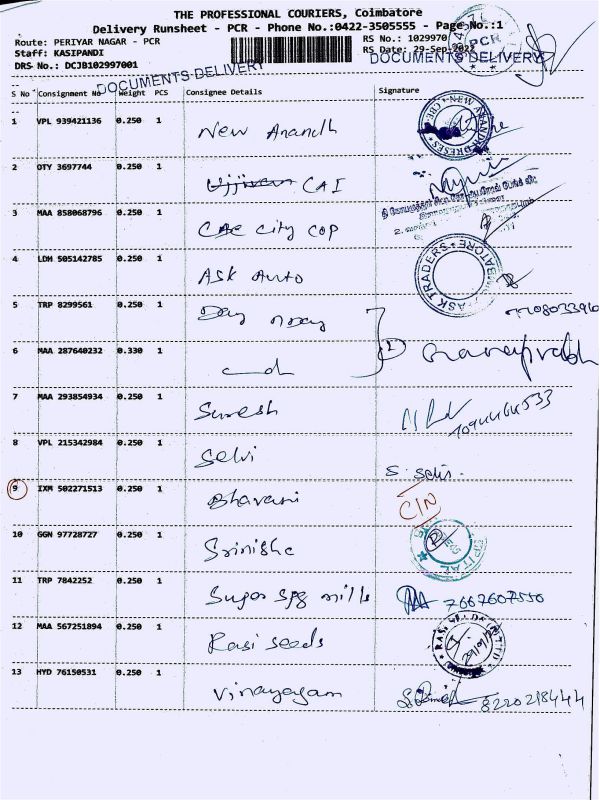 THE PROFESSIONAL COURIERS, Coimbatore
Delivery Runsheet - PCR - Phone No.:0422-3505555 - Page No.:1
Route: PERIYAR NAGAR - PCR
RS No.: 1029970
Staff: KASIPANDI
RS Date: 29-Sep-2022
DRS No.: DCJB102997001
DOCUMENTS DELIVERY
DOCUMENTS DELIVERY
PCR
S No Consignment No Weight PCS Consignee Details Signature
1 VPL 939421136 0.250 1 New Anandh
2 OTY 3697744 0.250 1 CAI
3 MAA 858068796 0.250 1 CBE City Cop
4 LDM 505142785 0.250 1 ASK Auto
ASK TRADERS
5 TRP 8299561 0.250 1
6 MAA 287640232 0.330 1
7 MAA 293854934 0.250 1 Suresh
8 VPL 215342984 0.250 1 Selvi S. Selvi
9 IXM 502271513 0.250 1 Bhavani C/N
10 GGN 97728727 0.250 1 Srinisha
11 TRP 7842252 0.250 1 Super Spg mills 7667607550
12 MAA 567251894 0.250 1 Rasi Seeds
13 HYD 76150531 0.250 1 Vinayagam 8220218444